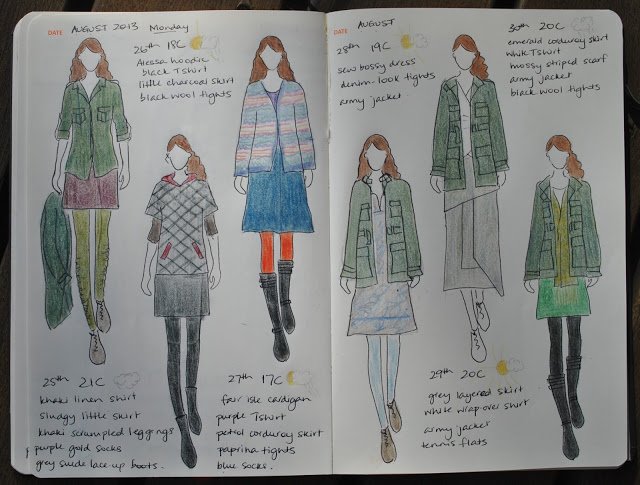 DATE AUGUST 2013 Monday
26th 18C
Alessa hoodie
black Tshirt
little charcoal skirt
black wool tights
25th 21C
khaki linen shirt
sludgy little skirt
khaki scrumpled leggings
purple gold socks
grey suede lace-up boots.
27th 17C
fair isle cardigan
purple Tshirt
petrol corduroy skirt
paprika tights
blue socks.
DATE AUGUST
28th 19C
sew bossy dress
denim-look tights
army jacket
30th 20C
emerald corduroy skirt
white Tshirt
mossy striped scarf
army jacket
black wool tights
29th 20C
grey layered skirt
white wrapover shirt
army jacket
tennis flats